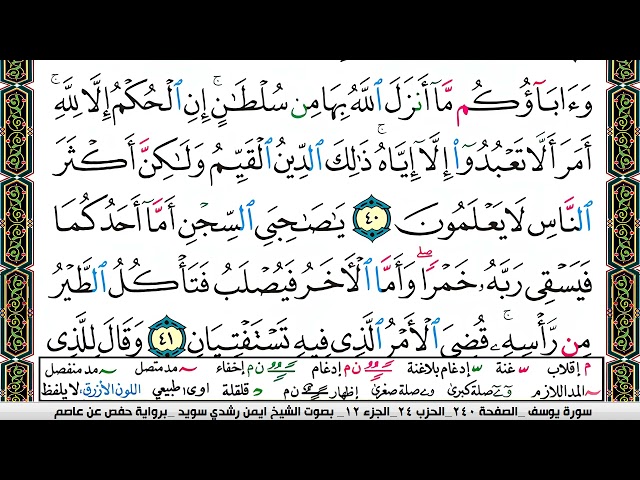 وَءَابَآؤُكُم مَّآ أَنزَلَ ٱللَّهُ بِهَا مِن سُلْطَـٰنٍ ۚ إِنِ ٱلْحُكْمُ إِلَّا لِلَّهِ ۚ
أَمَرَ أَلَّا تَعْبُدُوٓا۟ إِلَّآ إِيَّاهُ ۚ ذَٰلِكَ ٱلدِّينُ ٱلْقَيِّمُ وَلَـٰكِنَّ أَكْثَرَ
ٱلنَّاسِ لَا يَعْلَمُونَ ٤٠ يَـٰصَـٰحِبَىِ ٱلسِّجْنِ أَمَّآ أَحَدُكُمَا
فَيَسْقِى رَبَّهُۥ خَمْرًا ۖ وَأَمَّا ٱلْـَٔاخَرُ فَيُصْلَبُ فَتَأْكُلُ ٱلطَّيْرُ
مِن رَّأْسِهِۦ ۚ قُضِىَ ٱلْأَمْرُ ٱلَّذِى فِيهِ تَسْتَفْتِيَانِ ٤١ وَقَالَ لِلَّذِى
م إقلاب س غنة س إدغام بلاغنة ن م إدغام ن م إخفاء ~ مد متصل ~ مد منفصل
~ المد اللازم وے صلة كبرى وے صلة صغرى إظهار ن م د قلقلة اوى طبيعي اللون الأزرق، لا يلفظ
سورة يوسف _الصفحة ٢٤٠_ الحزب ٢٤_ الجزء ١٢_ بصوت الشيخ ايمن رشدي سويد _برواية حفص عن عاصم